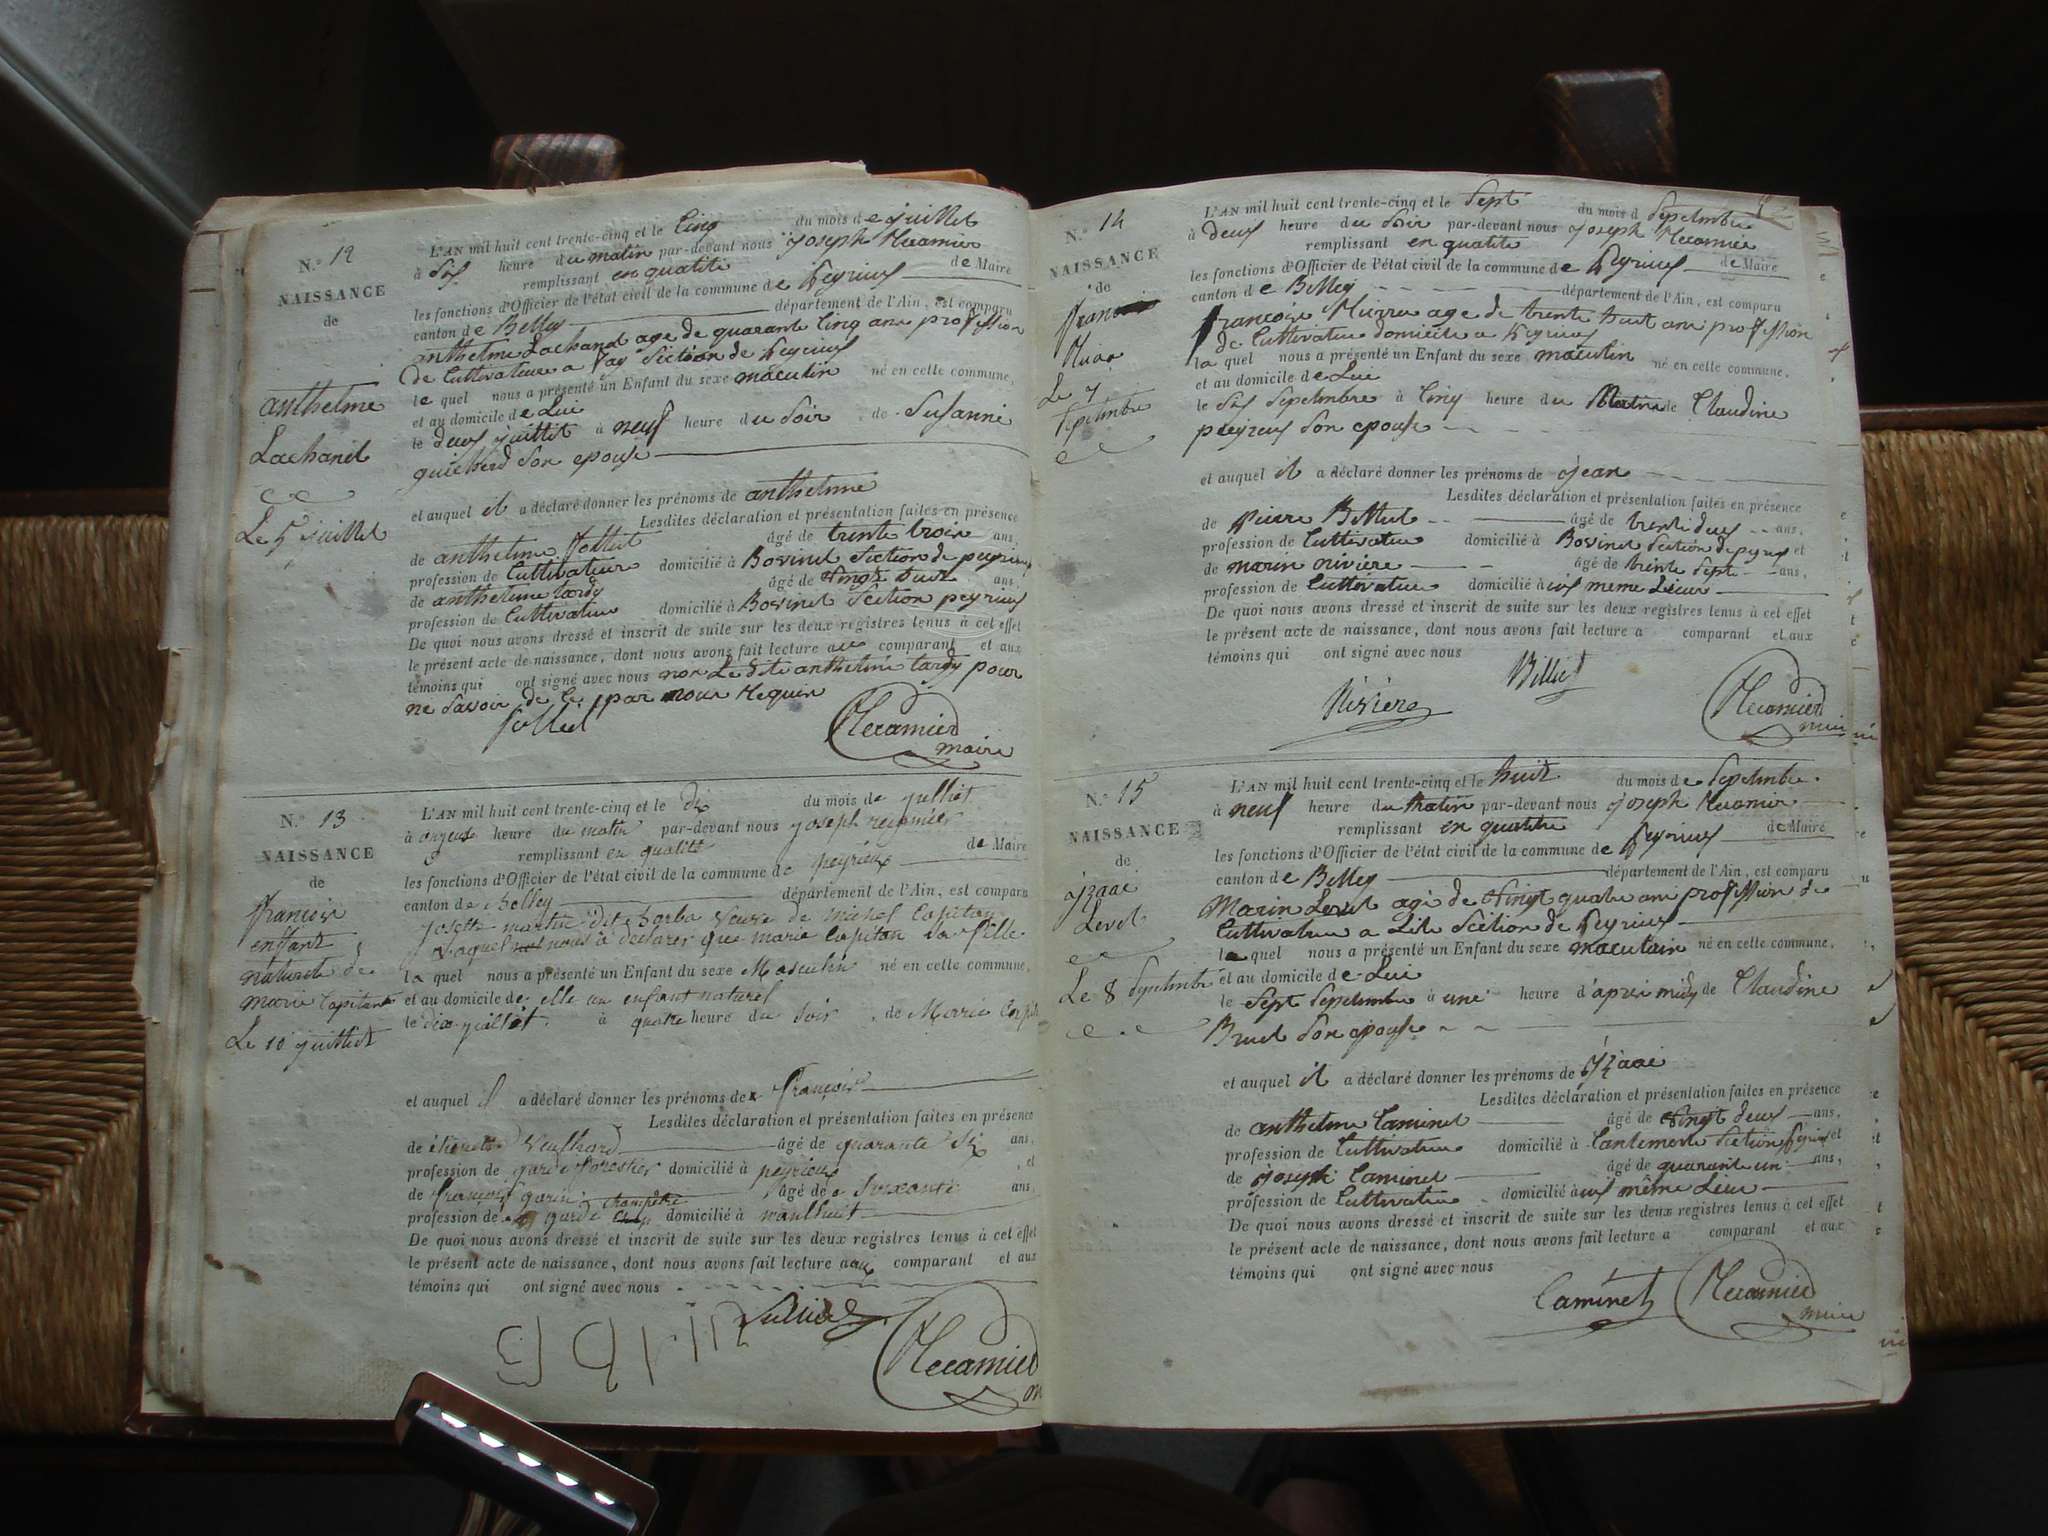 N.° 12
NAISSANCE
de
anthelme
Lachanel
Le 5 juillet
L'AN mil huit cent trente-cinq et le Cinq du mois de juillet
à Six heure du matin par-devant nous joseph Recamier
remplissant en qualité de Maire
les fonctions d'Officier de l'état civil de la commune de Peyrieux
canton de Belley département de l'Ain, est comparu
anthelme Lachanal age de quarante Cinq ans profession
de Cultivateur a Section de Peyrieux
le quel nous a présenté un Enfant du sexe maculin né en cette commune,
et au domicile de Lui
le deux juillet à neuf heure du Soir de Susanne
son epouse
et auquel il a déclaré donner les prénoms de anthelme
Lesdites déclaration et présentation faites en présence
de anthelme jolliet âgé de trente trois ans,
profession de Cultivateur domicilié à Bovinel Section de peyrieux
de anthelme tardy âgé de Vingt ans,
profession de Cultivateur domicilié à Bovinel Section peyrieux
De quoi nous avons dressé et inscrit de suite sur les deux registres tenus à cet effet
le présent acte de naissance, dont nous avons fait lecture au comparant et aux
témoins qui ont signé avec nous non Le dit anthelme tardy pour
ne Savoir de Ce par nous Requis
jolliet Recamier
maire
N.° 13
NAISSANCE
de
françois
enfant
naturele de
marie Capitan
Le 10 juilliet
L'AN mil huit cent trente-cinq et le dix du mois de juilliet
à onzeuse heure du matin par-devant nous joseph recamier
remplissant en qualité de Maire
les fonctions d'Officier de l'état civil de la commune de peyrieux
canton de belley département de l'Ain, est comparu
josette martin dit borba Veuve de michel Capitan
Laquel nous a declarer que marie Capitan Sa fille
la quel nous a présenté un Enfant du sexe Masculin né en cette commune,
et au domicile de elle un enfant naturel
le dix juilliet à quatre heure du Soir de Marie
et auquel il a déclaré donner les prénoms de françois
Lesdites déclaration et présentation faites en présence
de âgé de quarante Six ans,
profession de garde forestier domicilié à peyrieux et
de françois garin âgé de Soixante ans,
profession de garde champêtre domicilié à
De quoi nous avons dressé et inscrit de suite sur les deux registres tenus à cet effet
le présent acte de naissance, dont nous avons fait lecture aux comparant et aux
témoins qui ont signé avec nous
Recamier
N.° 14
NAISSANCE
de
Le 7
Septembre
L'AN mil huit cent trente-cinq et le Sept du mois d Septembre
à deux heure du Soir par-devant nous joseph Recamier
remplissant en qualite de Maire
les fonctions d'Officier de l'état civil de la commune de Peyrieux
canton de Belley département de l'Ain, est comparu
françois age de trente huit ans profession
de Cultivateur domicile a Peyrieux
la quel nous a présenté un Enfant du sexe maculin né en cette commune,
et au domicile de Lui
le Six Septembre à Cinq heure du Matin de Claudine
peyreux Son epouse
et auquel il a déclaré donner les prénoms de jean
Lesdites déclaration et présentation faites en présence
de Pierre Billiet âgé de trente deux ans,
profession de Cultivateur domicilié à Bovinel Section de et
de marin riviere âgé de trente Sept ans,
profession de Cultivateur domicilié à meme Lieux
De quoi nous avons dressé et inscrit de suite sur les deux registres tenus à cet effet
le présent acte de naissance, dont nous avons fait lecture a comparant et aux
témoins qui ont signé avec nous
Billiet
Rivière Recamier
maire
N.° 15
NAISSANCE
de
jzaac
Levet
Le 8 Septembre
L'AN mil huit cent trente-cinq et le huit du mois de Septembre
à neuf heure du Matin par-devant nous joseph Recamier
remplissant en qualite de Maire
les fonctions d'Officier de l'état civil de la commune de Peyrieux
canton de Belley département de l'Ain, est comparu
Marin Levet agé de Vingt quatre ans profession de
Cultivateur a Section de Peyrieux
la quel nous a présenté un Enfant du sexe maculain né en cette commune,
et au domicile de Lui
le Sept Septembre à une heure d'aprés midy de Claudine
Brunet Son epouse
et auquel il a déclaré donner les prénoms de jzaac
Lesdites déclaration et présentation faites en présence
de anthelme Caminet âgé de Vingt deux ans,
profession de Cultivateur domicilié à Section Peyrieux et
de joseph Caminet âgé de quarante un ans,
profession de Cultivateur domicilié à même Lieu
De quoi nous avons dressé et inscrit de suite sur les deux registres tenus à cet effet
le présent acte de naissance, dont nous avons fait lecture a comparant et aux
témoins qui ont signé avec nous
Caminet Recamier
maire